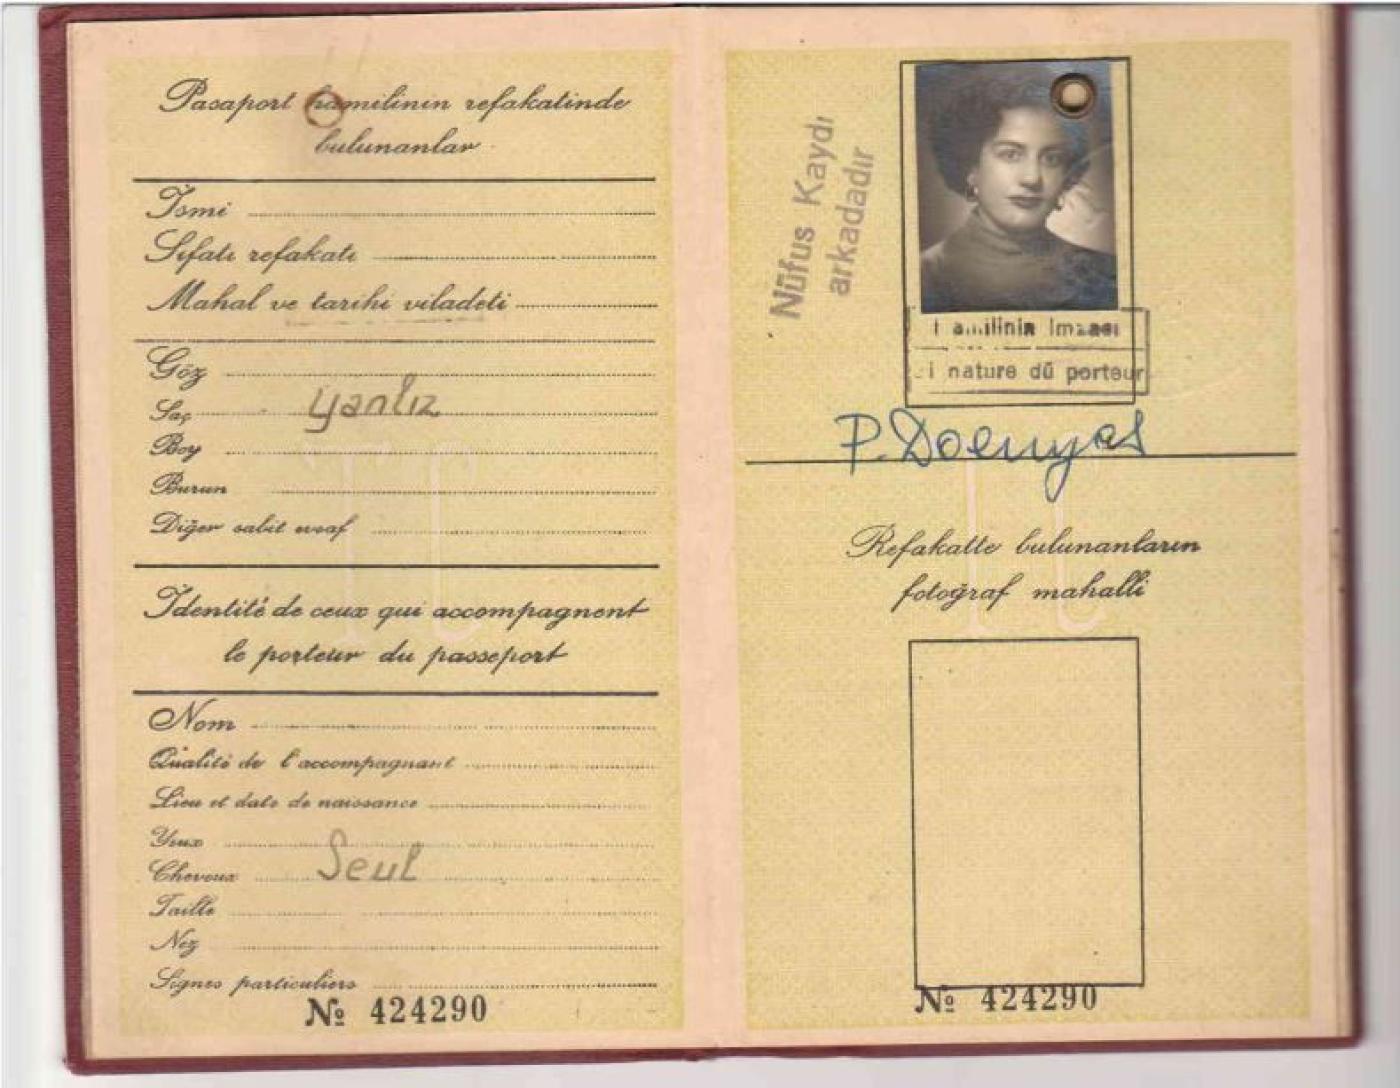 Pasaport hamilinin refakatinde
bulunanlar
İsmi
Sıfatı refakati
Mahal ve tarihi viladeti
Göz
Saç
yanlız
Boy
Burun
Diğer sabit evsaf
Identité de ceux qui accompagnent
le porteur du passeport
Nom
Qualité de l'accompagnant
Lieu et date de naissance
Yeux
Cheveux
Seul
Taille
Nez
Signes particuliers
№ 424290
Nüfus Kaydı
arkadadır
Hamilinin İmzası
Signature dü porteur
P. Doenyas
Refakatte bulunanların
fotoğraf mahalli
№ 424290